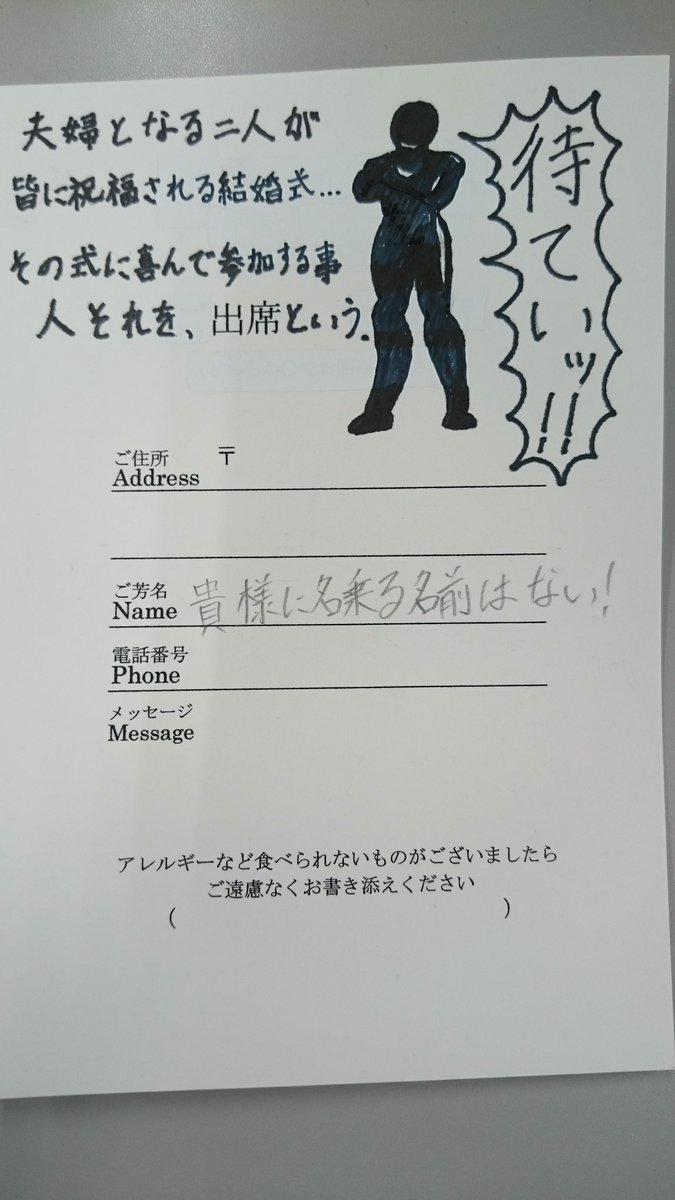 夫婦となる二人が
皆に祝福される結婚式…
その式に喜んで参加する事
人それを、出席という.
待てぃッ!!
ご住所 〒
Address
ご芳名
Name 貴様に名乗る名前はない!
電話番号
Phone
メッセージ
Message
アレルギーなど食べられないものがございましたら
ご遠慮なくお書き添えください
( )